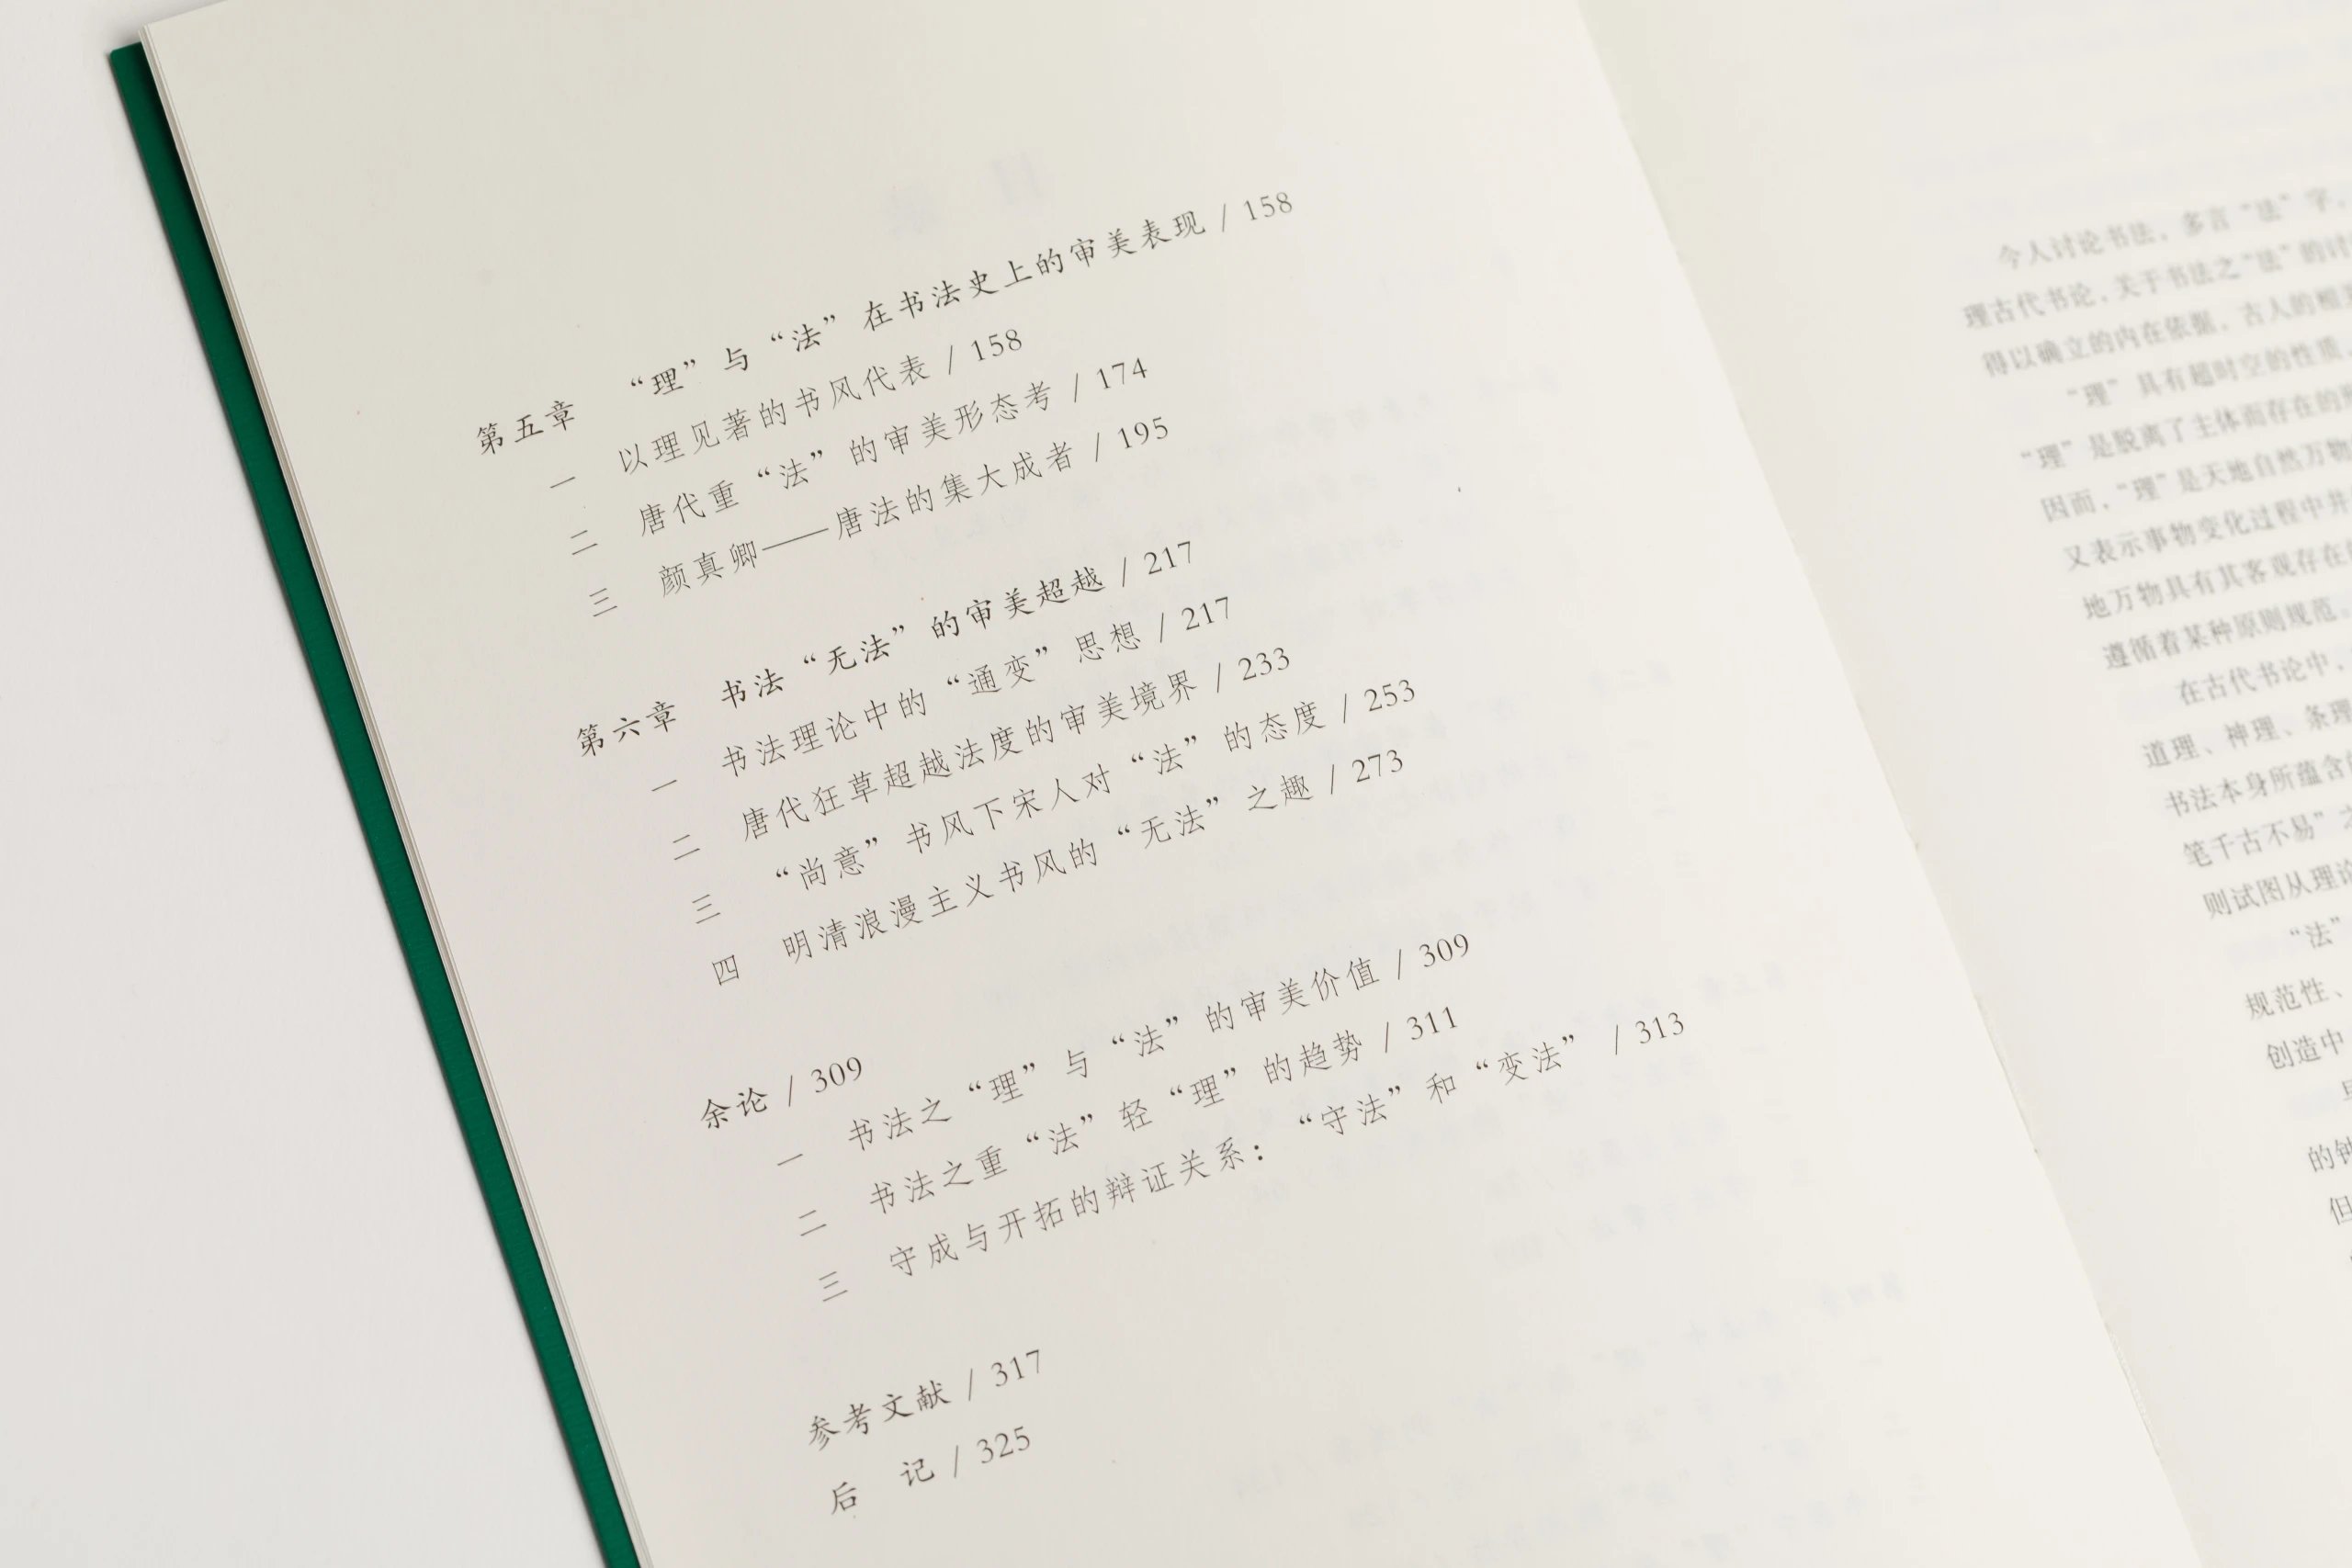 第五章　“理”与“法”在书法史上的审美表现 / 158
一　以理见著的书风代表 / 158
二　唐代重“法”的审美形态考 / 174
三　颜真卿——唐法的集大成者 / 195
第六章　书法“无法”的审美超越 / 217
一　书法理论中的“通变”思想 / 217
二　唐代狂草超越法度的审美境界 / 233
三　“尚意”书风下宋人对“法”的态度 / 253
四　明清浪漫主义书风的“无法”之趣 / 273
余论 / 309
一　书法之“理”与“法”的审美价值 / 309
二　书法之重“法”轻“理”的趋势 / 311
三　守成与开拓的辩证关系：“守法”和“变法” / 313
参考文献 / 317
后　记 / 325
今人讨论书法，多言“法”字，
理古代书论，关于书法之“法”的讨
得以确立的内在依据，古人的相
“理”具有超时空的性质，
“理”是脱离了主体而存在的
因而，“理”是天地自然万物
又表示事物变化过程中并
地万物具有其客观存在
遵循着某种原则规范，
在古代书论中，
道理、神理、条理
书法本身所蕴含
笔千古不易”之
则试图从理论
“法”
规范性、
创造中
的钟
但